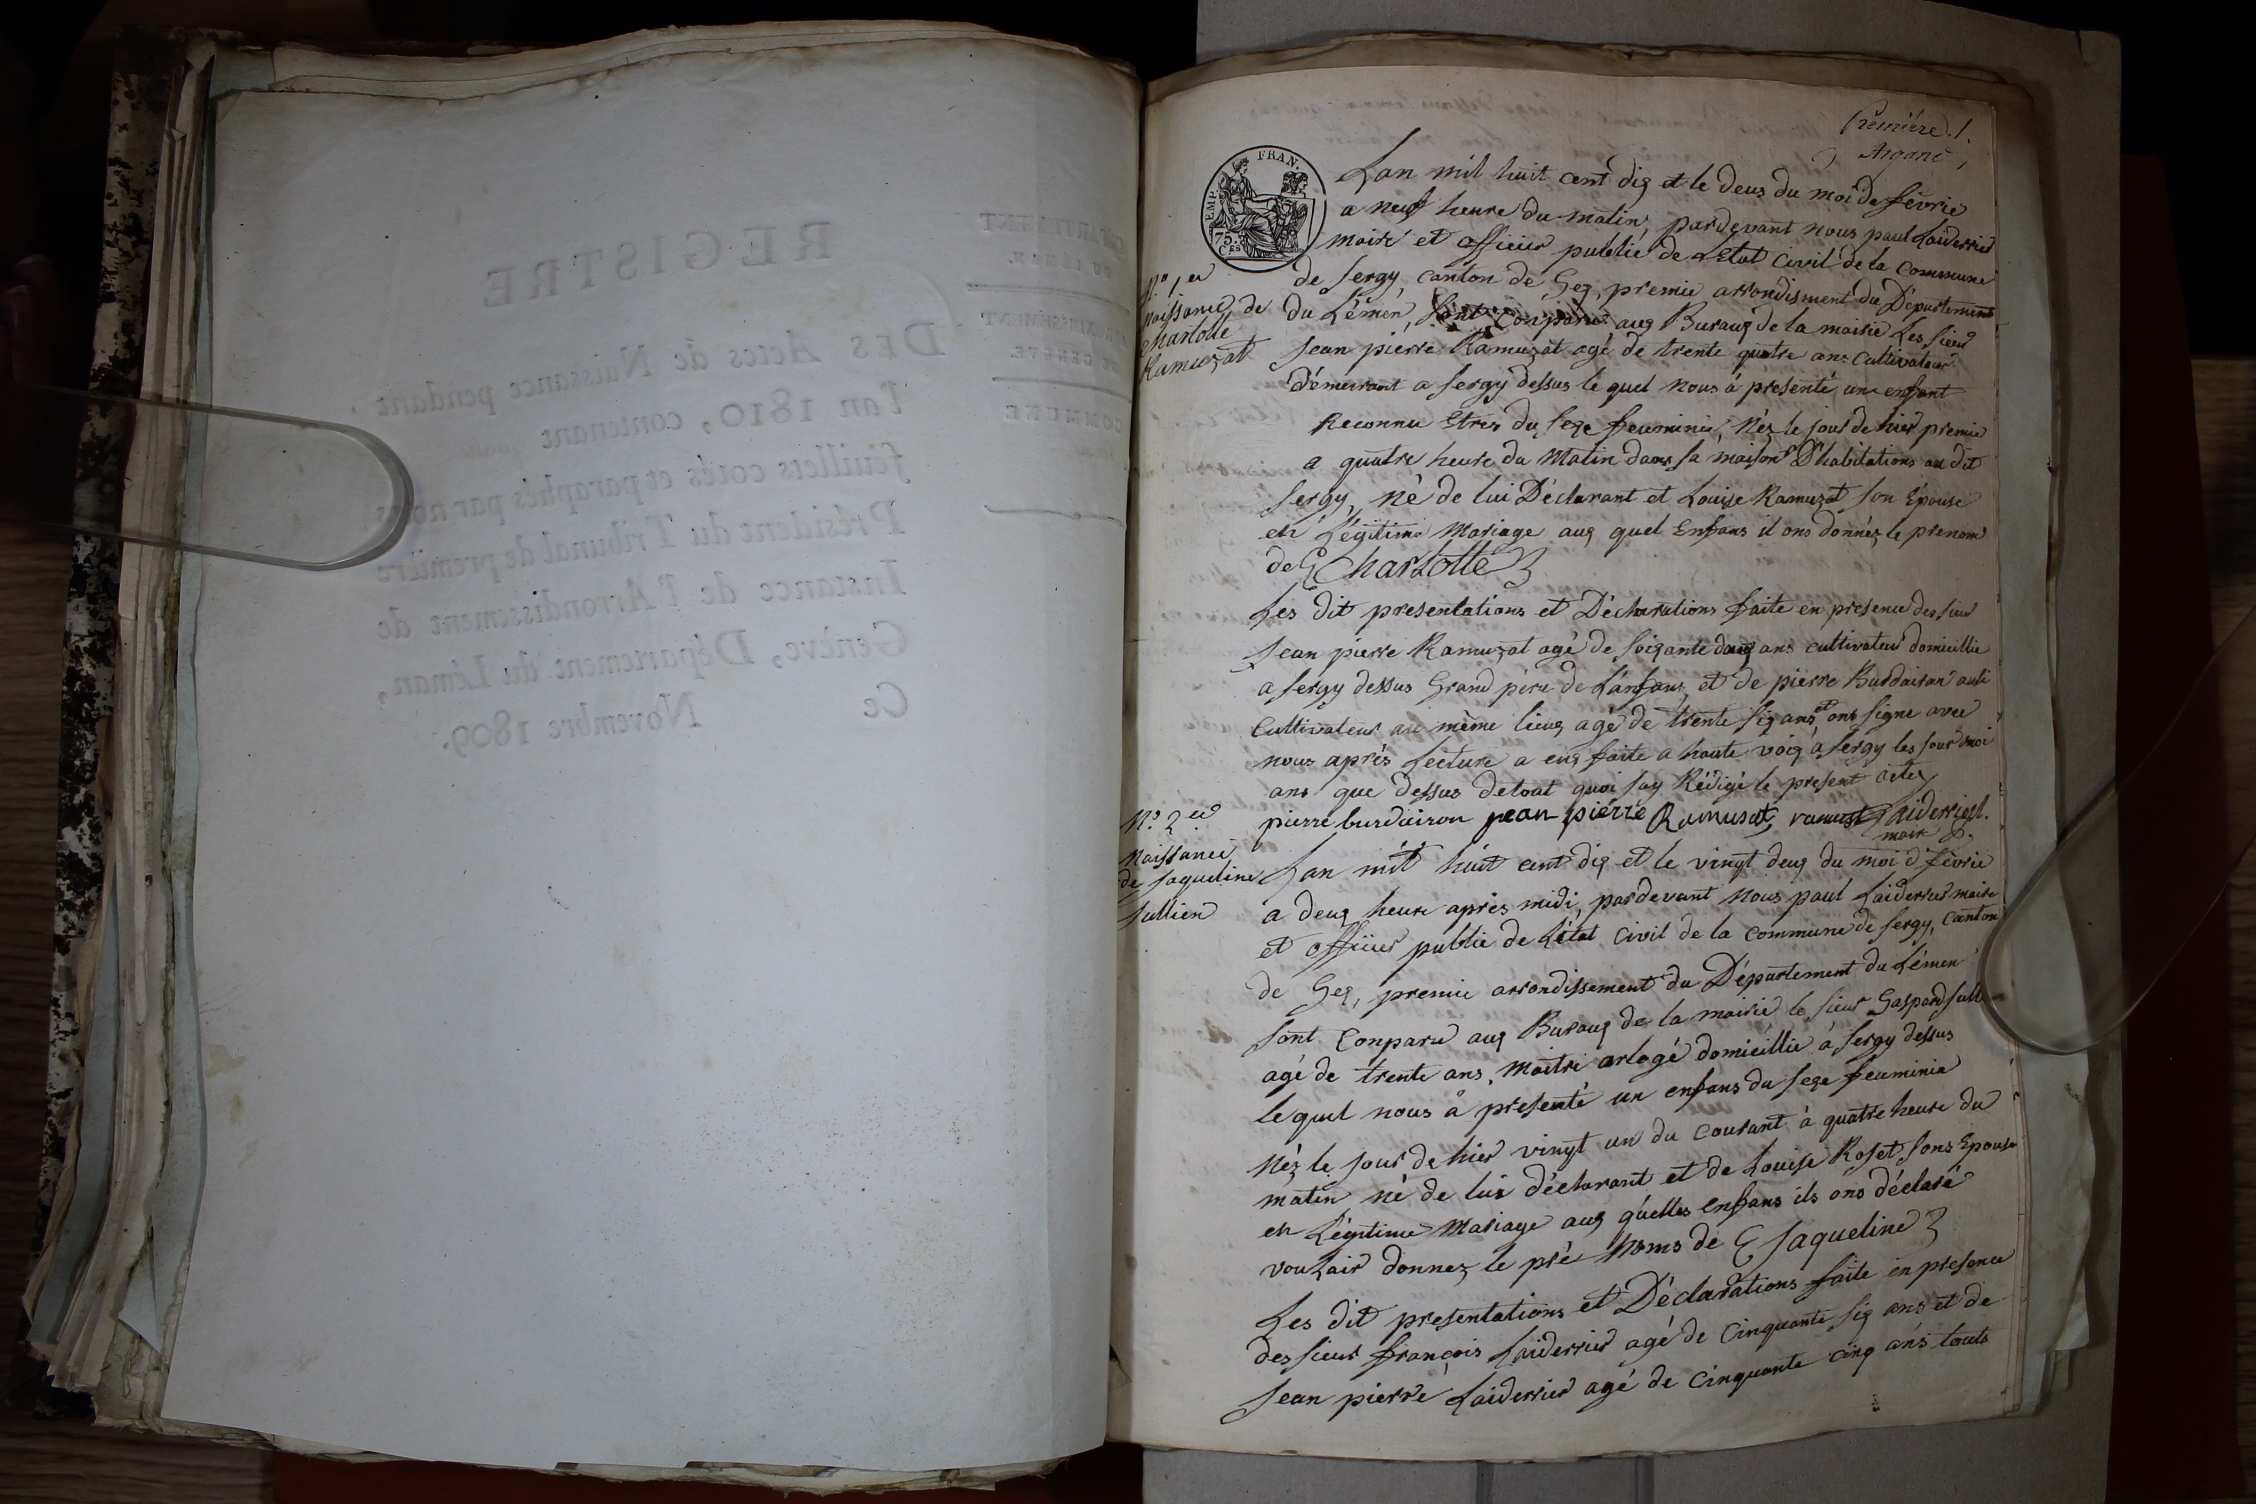 DÉPARTEMENT
DU LÉMAN.
ARRONDISSEMENT
DE GENÈVE.
COMMUNE
REGISTRE
DES Actes de Naissance pendant
l'an 1810, contenant
feuillets cotés et paraphés par nous
Président du Tribunal de première
Instance de l'Arrondissement de
Genève, Département du Léman,
Ce Novembre 1809.
Premiére. 1.
EMP. FRAN.
75. CES
Lan mil huit cent dix et le deux du moi de févrie
a neuf heure du matin, pardevant nous paul Laiderrier
maire et officier publie de L'Etat Civil de la Commune
de Sergy, canton de Gex, premie arrondisment du Département
du Lémen, sont Conparu aux Buraux de la mairie Les sieur
Jean pierre Ramuzat agé de trente quatre ans cultivateur
démeurant a Sergy dessus le quel nous á presenté un enfant
Reconnu Etres du sexe feuminin, Néz le jour de hier premie
a quatre heure du Matin dans sa maison D'habitations au dit
Sergy, né de lui Déclarant et Louise Ramuzat son Epouse
en Légitime Mariage aux quel Enfans il ons donnéz le prenom
de Charlotte
Les dit presentations et Déclarations faite en presence des sieur
Jean pierre Ramuzat agé de soixante ans cultivateur domicillie
a Sergy dessus Grand père de L'anfans, et de pierre Burdairon
Cultivateur au même lieux agé de trente six ans et ons signe avec
nous aprés Lecture a eux faite a haute voix á Sergy les jour moi
ans que dessus de tout quoi jay Rédigé le present actes
pierre burdairon jean pierre Ramusat, Laiderrier.
maire
N.º 1.er
Naissance de
Charlotte
Ramuzat
N.º 2.e
Naissance
de Jaqueline
Jullien
Lan mil huit cent dix et le vingt deux du moi d févrie
a deux heure aprés midi, pardevant Nous paul Laiderrier maire
et officier publie de L'état Civil de la Commune de Sergy, Canton
de Gex, premie arrondissement du Département du Lémen
sont Conparu aux Buraux de la mairie le sieur Gaspard Jull
agé de trente ans, Maitre arlogé domicillie á Sergy dessus
le quel nous á presenté un enfans du sexe feuminin
Néz le jour de hier vingt un du courant á quatre heure du
matin né de lui déclarant et de Louise Roset sons Epouse
en Légitime Mariage aux quelles Enfans ils ons déclaré
voulair donnez le pré Noms de Jaqueline
Les dit presentations et Déclarations faite en presence
des sieur françois Laiderrier agé de Cinquante six ans et de
Jean pierre Laiderrier agé de Cinquante cinq ans touts